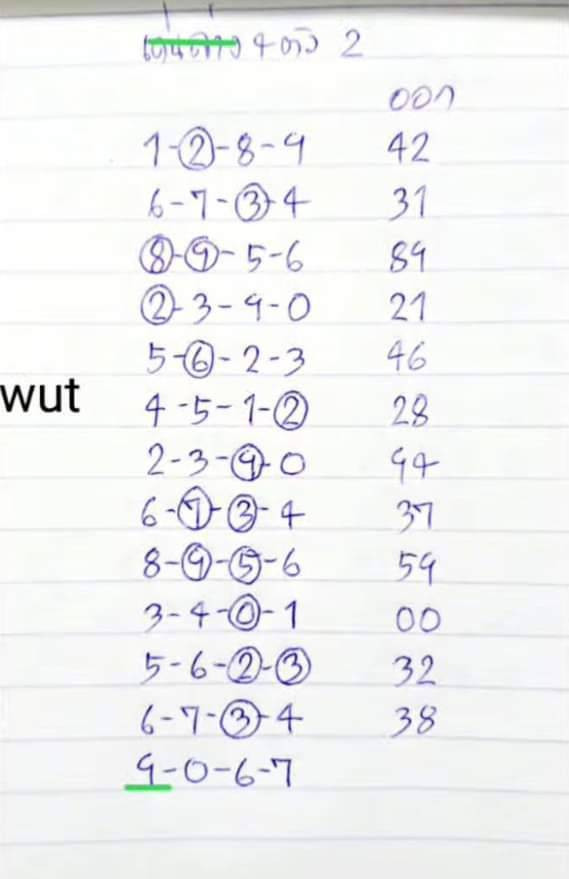 เด่นล่าง 4 ตัว 2
ออก
1-2-8-9 42
6-7-3-4 31
8-9-5-6 89
2-3-9-0 21
5-6-2-3 46
wut
4-5-1-2 28
2-3-9-0 94
6-7-3-4 37
8-9-5-6 59
3-4-0-1 00
5-6-2-3 32
6-7-3-4 38
9-0-6-7